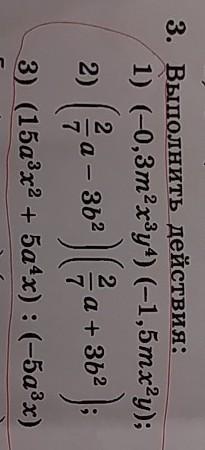 3. Выполнить действия:
1) (−0,3m²x³y⁴) (−1,5mx²y);
2) (2/7 a − 3b²) (2/7 a + 3b²);
3) (15a³x² + 5a⁴x) : (−5a³x)